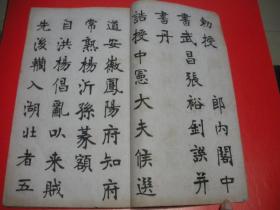 勅授　郎內閣中
書武昌張裕釗譔并
書丹
誥授中憲大夫候選
道安徽鳳陽府知府
常熟楊沂孫篆額
自洪楊倡亂以來賊
先後輷入湖北者五